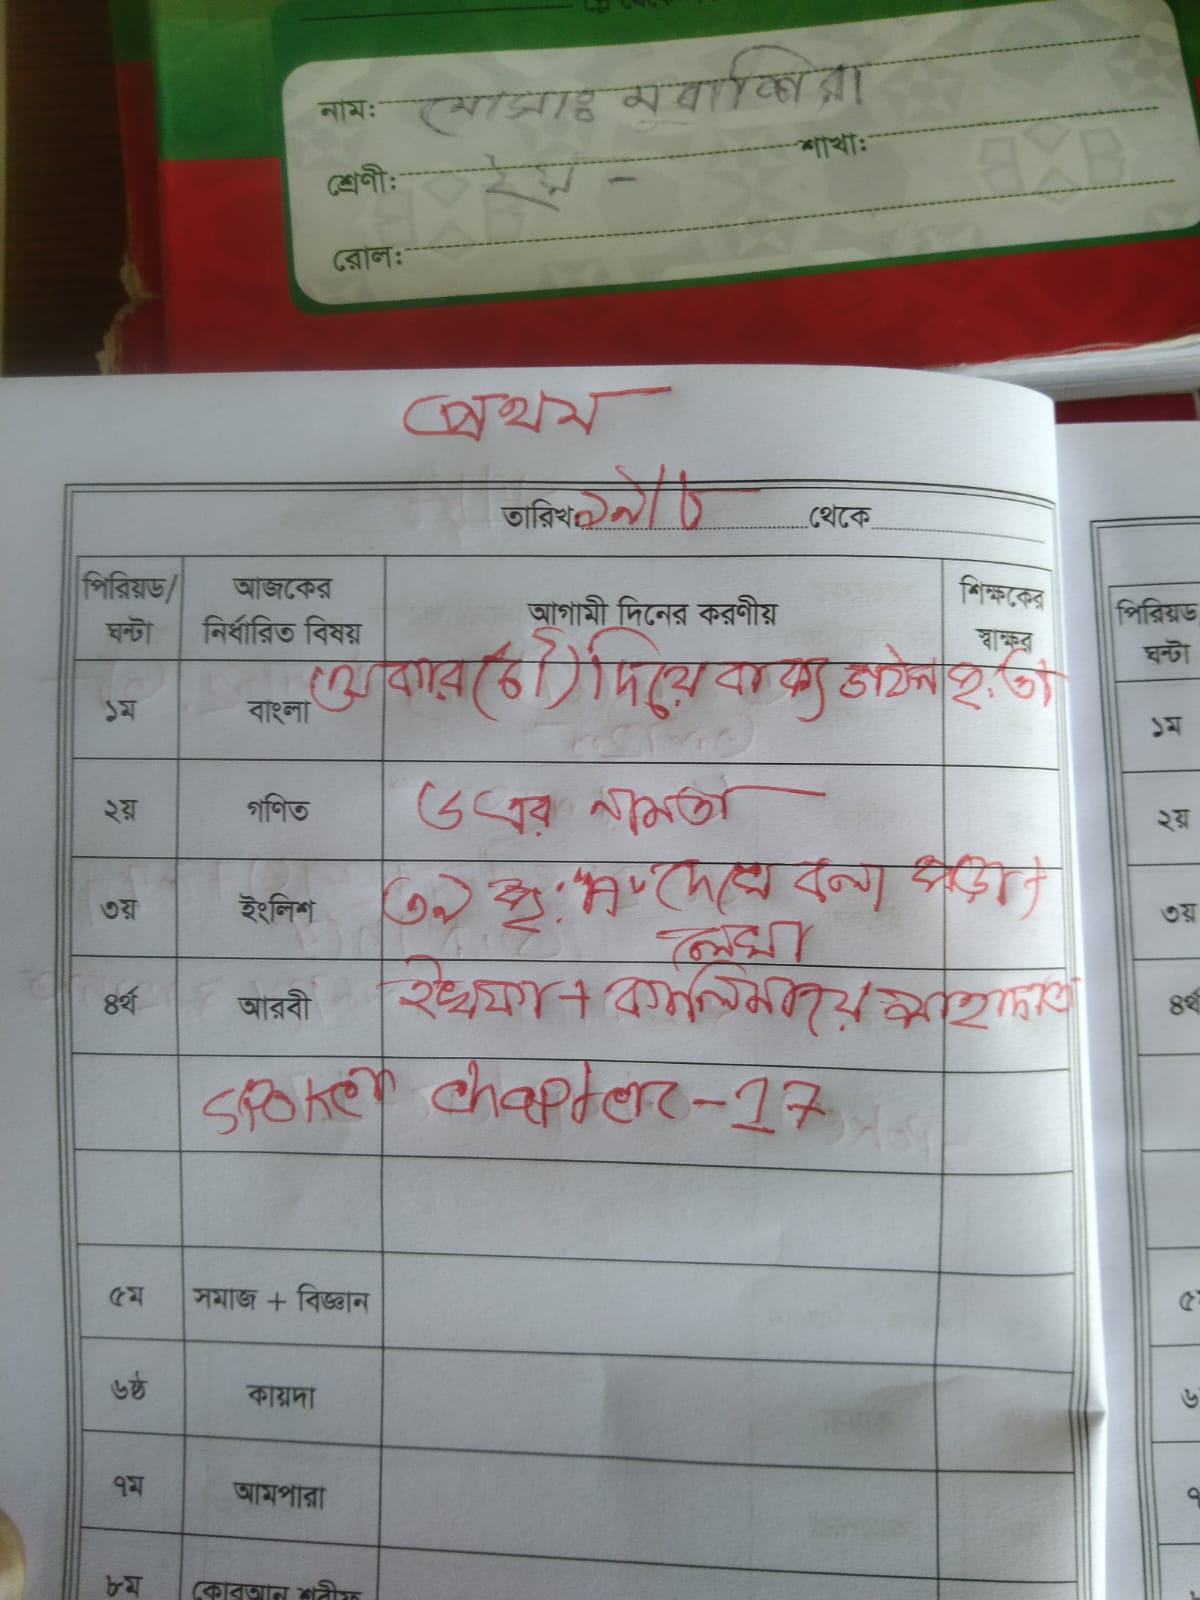 নাম: মোসাঃ মুবাশ্শিরা
শ্রেণী: শাখা:
রোল:
প্রথম
তারিখ থেকে
পিরিয়ড/ঘন্টা আজকের নির্ধারিত বিষয় আগামী দিনের করণীয় শিক্ষকের স্বাক্ষর
১ম বাংলা দিয়ে বাক্য গঠন হ.তা
২য় গণিত ৬ এর নামতা
৩য় ইংলিশ ৩১ পৃ: দেখে বলা পড়া +
লেখা
৪র্থ আরবী ইখফা + কালিমায়ে শাহাদাত
SPOKEN chapter - 17
৫ম সমাজ + বিজ্ঞান
৬ষ্ঠ কায়দা
৭ম আমপারা
৮ম কোরআন শরীফ
পিরিয়ড
ঘন্টা
১ম
২য়
৩য়
৪র্থ